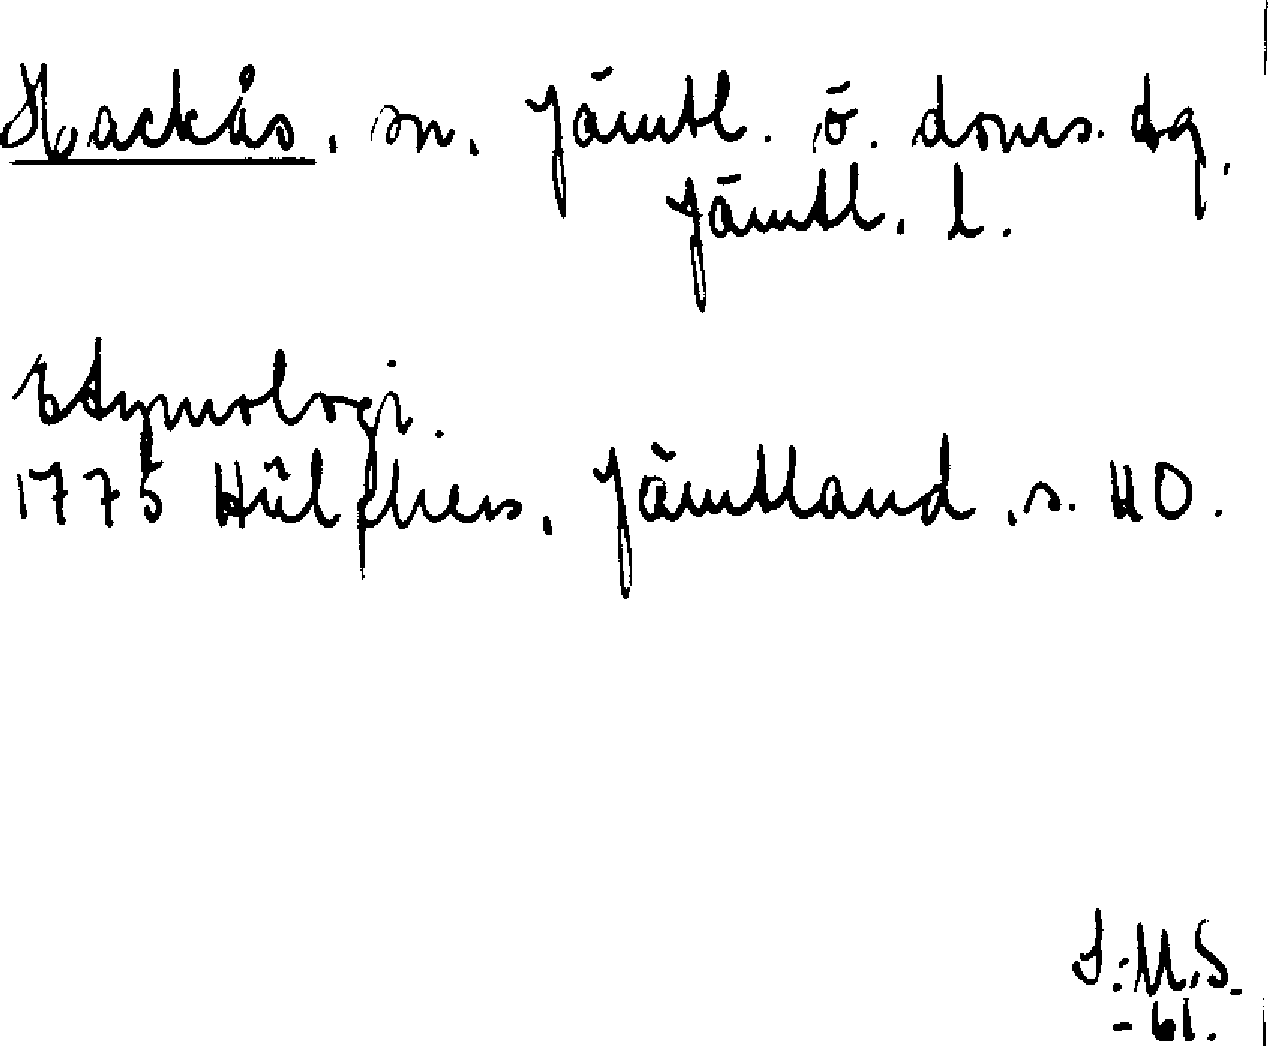 Hackås. sn. Jämtl. ö. doms. dq.
Jämtl. l.
Etymologi.
1775 Hülphers. Jämtland, s. 40.
-61.